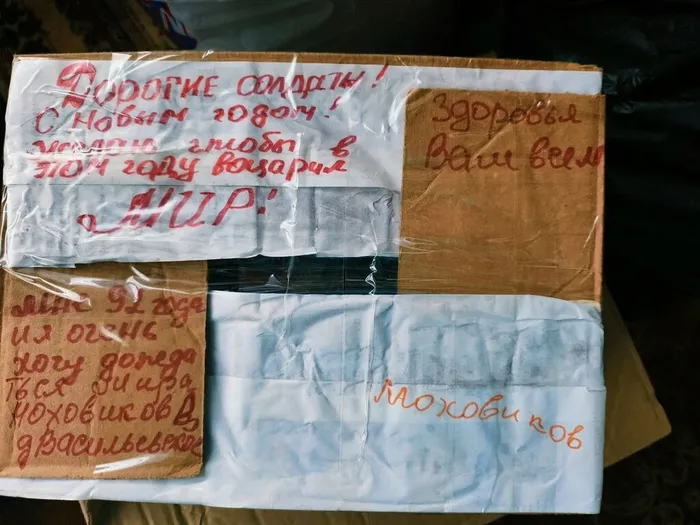 Дорогие солдаты!
С новым годом!
желаю чтобы в
этом году воцарил
МИР!
Здоровья
Вам всем
мне 92 года
и я очень
хочу дожда
ться мира
Моховиков
дВасильевское
Моховиков